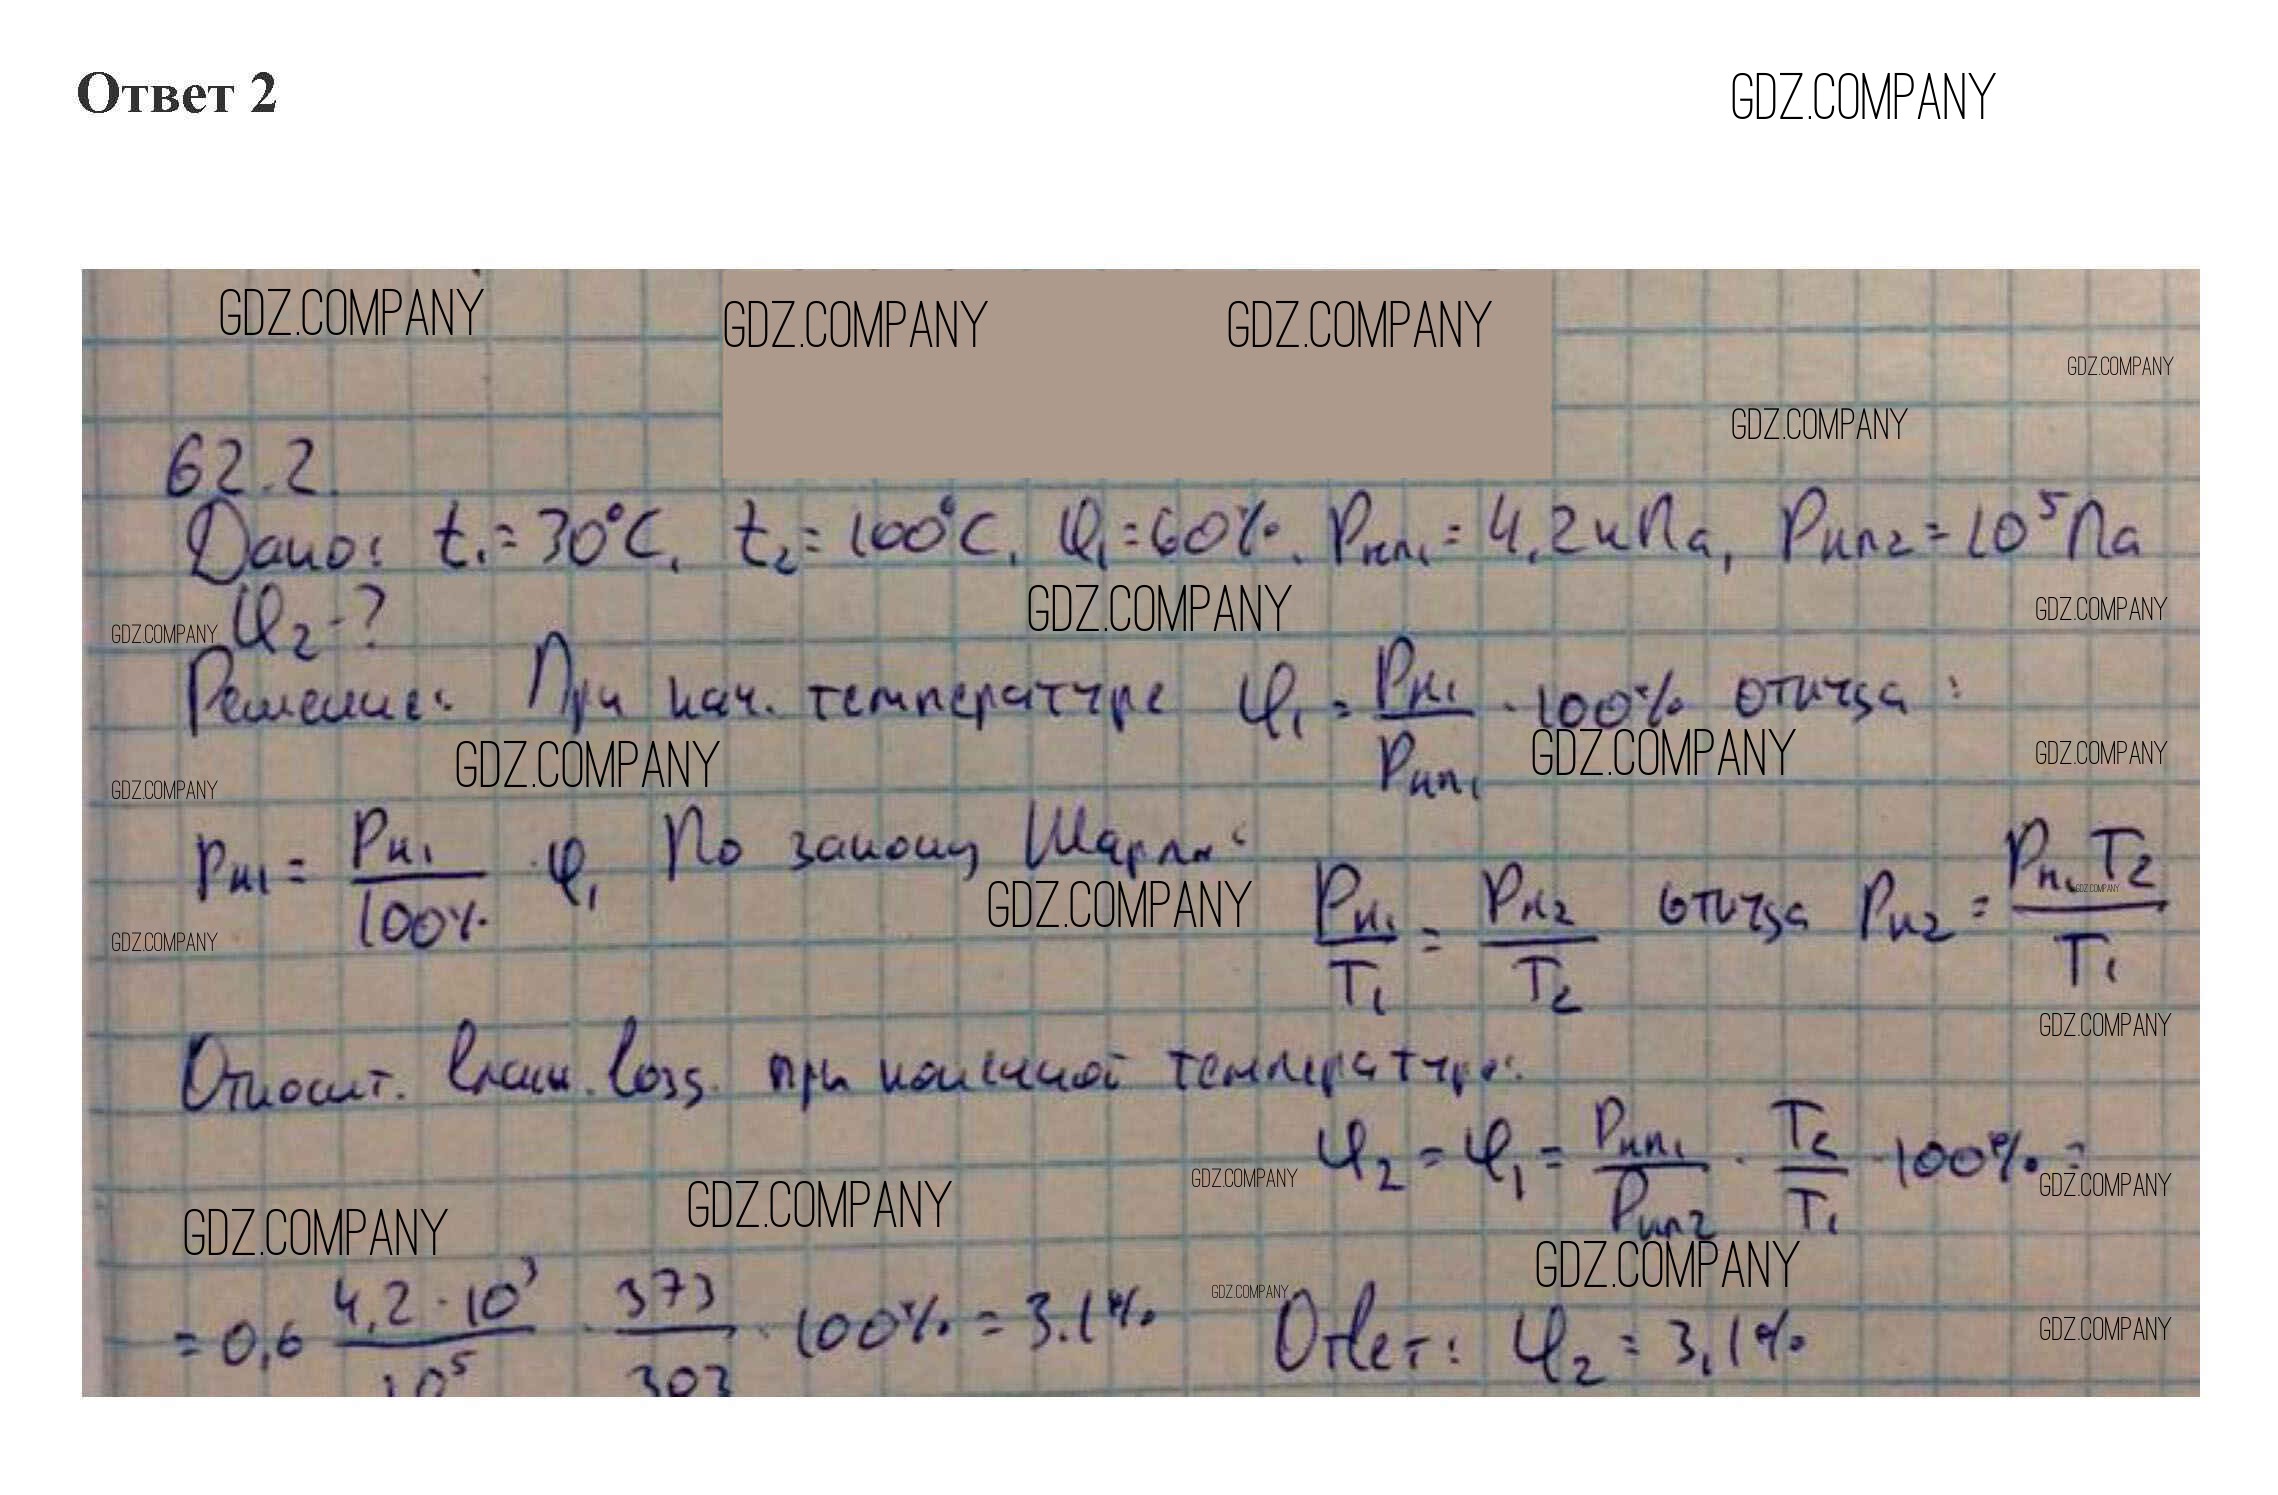 Ответ 2
GDZ.COMPANY
GDZ.COMPANY
GDZ.COMPANY
GDZ.COMPANY
GDZ.COMPANY
GDZ.COMPANY
62.2.
Дано: t₁ = 30°C, t₂ = 100°C, φ₁ = 60%. Pнп₁ = 4,2 кПа, Pнп2 = 10⁵ Па
GDZ.COMPANY
GDZ.COMPANY
GDZ.COMPANY
φ₂ - ?
Решение: При нач. температуре φ₁ = Pн₁/Pнп₁ · 100% откуда:
GDZ.COMPANY
GDZ.COMPANY
GDZ.COMPANY
GDZ.COMPANY
Pн1 = Pн₁/100% · φ₁ По закону Шарля:
GDZ.COMPANY
GDZ.COMPANY
GDZ.COMPANY
Pн₁/T₁ = Pн₂/T₂ откуда Pн2 = Pн₁T₂/T₁
GDZ.COMPANY
Относит. влаж. возд. при конечной температуре:
φ₂ = φ₁ = Pнп₁/Pнп2 · T₂/T₁ · 100% =
GDZ.COMPANY
GDZ.COMPANY
GDZ.COMPANY
GDZ.COMPANY
GDZ.COMPANY
GDZ.COMPANY
GDZ.COMPANY
= 0,6 4,2·10³/10⁵ · 373/303 · 100% = 3.1% Ответ: φ₂ = 3,1%